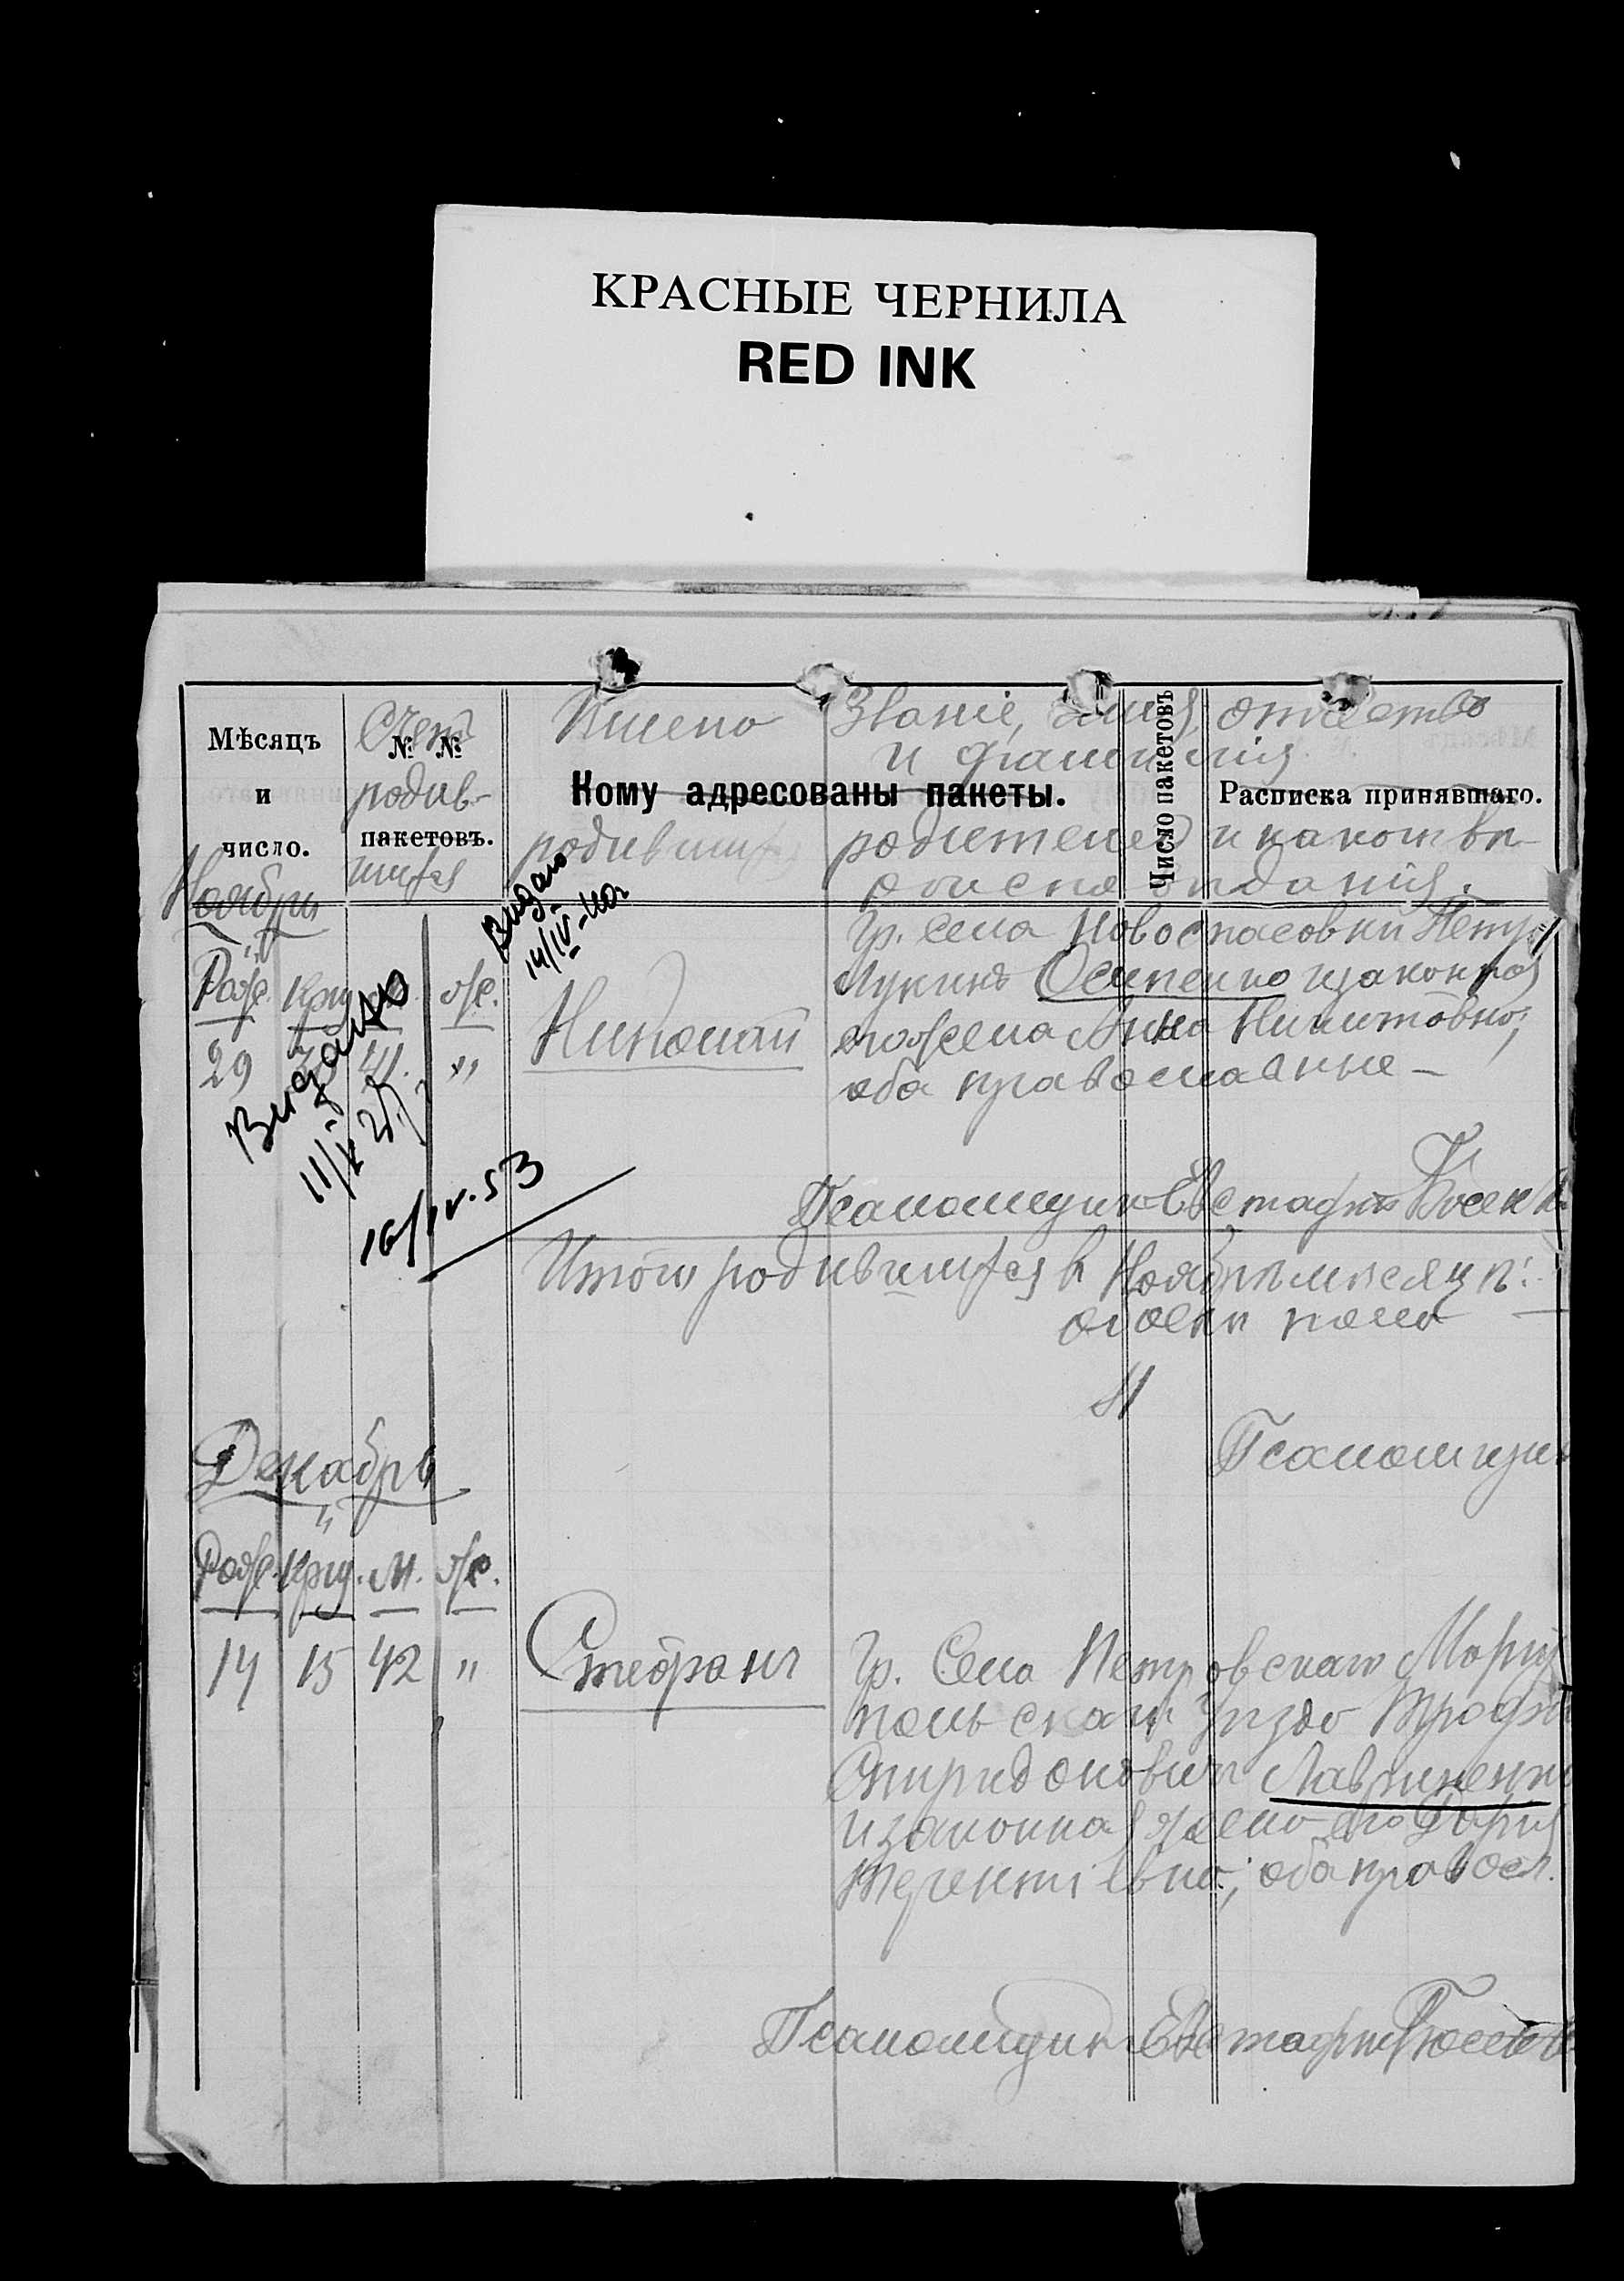 КРАСНЫЕ ЧЕРНИЛА
RED INK
Мѣсяцъ
и
число.
Счетъ
№ №
родив-
пакетовъ.
шихся
Имена
Кому адресованы пакеты.
родившихся
Званіе, имя, отчество
и фамилія
родителей и какого вѣ-
роисповѣданія.
Число пакетовъ
Расписка принявшаго.
Ноябрь
Рож. Кр. ж.
29 41. "
Видано
11/V
16/IV.53
Видано
14/IV-40г
Николай
Гр. села Новоспасовки Петръ
Лукинъ Осипенко и законная
его жена Анна Никитовна,
оба православные –
Псаломщикъ Евстафій
Итого родившихся въ Ноябрѣ мѣсяцѣ:
обоего пола
11
Псаломщикъ
Декабрь
"
Рож. Крщ. М. ж.
14 15 42 "
Стефанъ
Гр. Села Петровскаго Маріу
польскаго уѣзда Трофим
Спиридоновичъ Лавриненко
и законная жена его Дарія
Терентіевна; оба правосл.
Псаломщикъ Евстафій